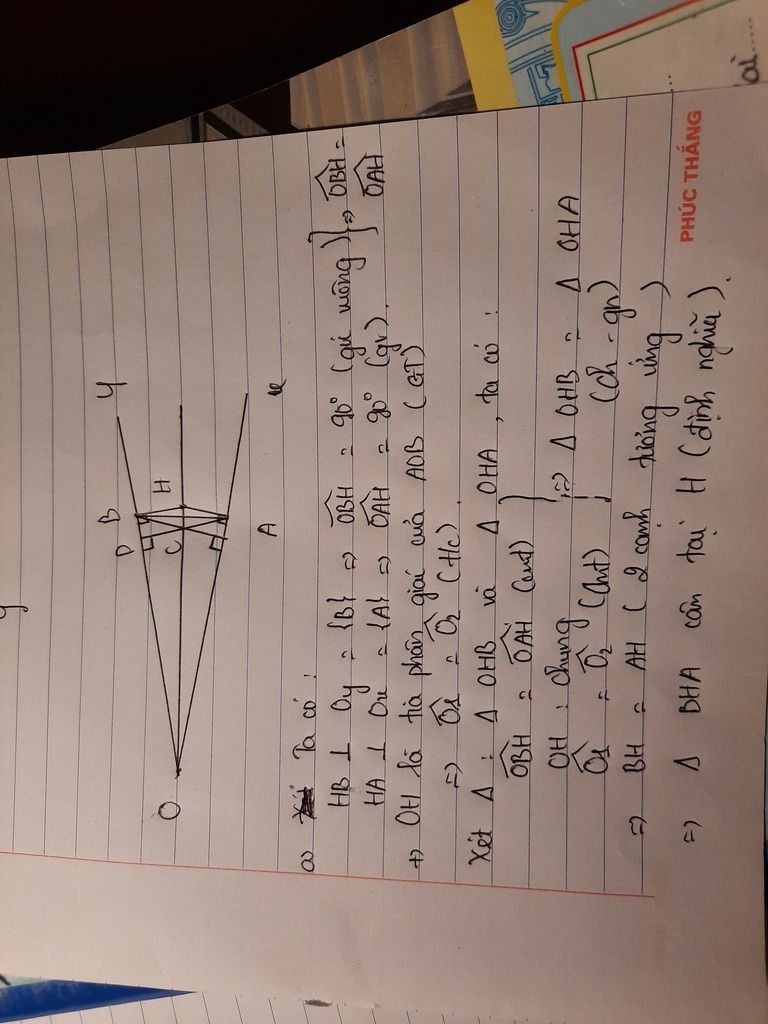 O
D
B
Y
C
H
A
x
a) Ta có:
HB ⊥ Oy = {B} => \widehat{OBH} = 90° (góc vuông) } => \widehat{OBH} =
HA ⊥ Ox = {A} => \widehat{OAH} = 90° (gv). \widehat{OAH}
+) OH là tia phân giác của AOB (GT)
=> \widehat{O1} = \widehat{O2} (t/c).
Xét Δ: Δ OHB và Δ OHA, ta có:
\widehat{OBH} = \widehat{OAH} (cmt)
OH: chung } => Δ OHB = Δ OHA
\widehat{O1} = \widehat{O2} (cmt) (ch - gn)
=> BH = AH (2 cạnh tương ứng)
=> Δ BHA cân tại H (định nghĩa).
PHÚC THẮNG